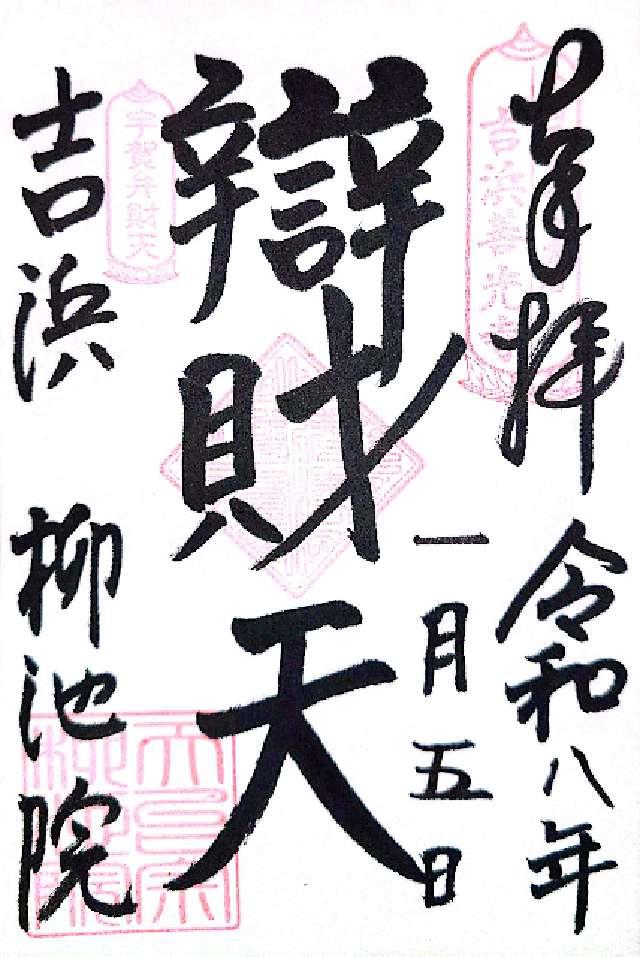 奉拝
令和八年
一月五日
吉浜善光寺
辯財天
宇賀弁財天
吉浜
柳池院